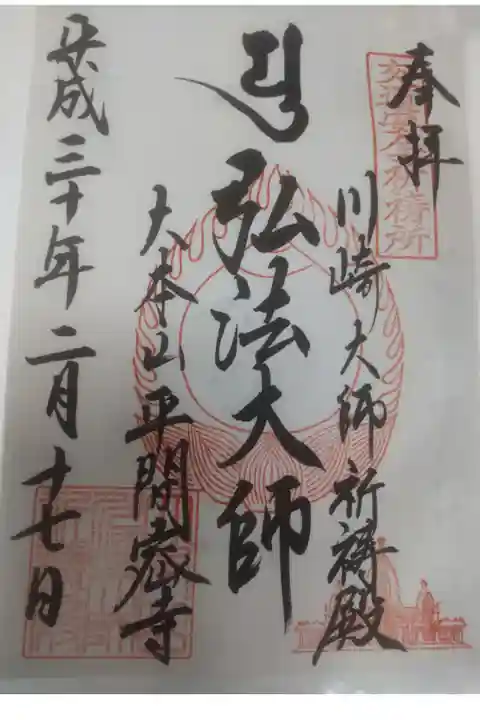 奉拝
交通安全祈祷所
川崎大師祈祷殿
弘法大師
大本山平間密寺
平成三十年二月十七日